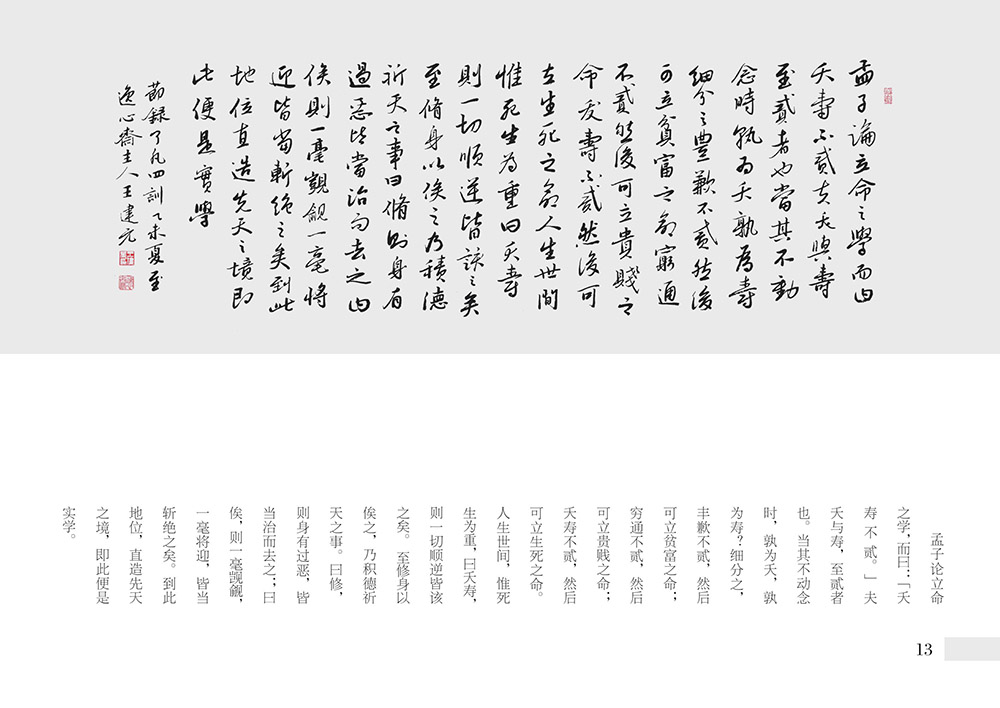 孟子論立命之學而曰
夭壽不貳夫夭與壽
至貳者也當其不動
念時孰為夭孰為壽
細分之豐歉不貳然後
可立貧富之命窮通
不貳然後可立貴賤之
命夭壽不貳然後可
立生死之命人生世間
惟死生為重曰夭壽
則一切順逆皆該之矣
至脩身以俟之乃積德
祈天之事曰脩則身有
過惡皆當治而去之曰
俟則一毫覬覦一毫將
迎皆當斬絕之矣到此
地位直造先天之境即
此便是實學
節録了凡四訓乙未夏至
逸心齋主人王建元
孟子论立命
之学，而曰：「夭
寿不贰。」夫
夭与寿，至贰者
也。当其不动念
时，孰为夭，孰
为寿？细分之，
丰歉不贰，然后
可立贫富之命；
穷通不贰，然后
可立贵贱之命；
夭寿不贰，然后
可立生死之命。
人生世间，惟死
生为重，曰夭寿，
则一切顺逆皆该
之矣。至修身以
俟之，乃积德祈
天之事。曰修，
则身有过恶，皆
当治而去之；曰
俟，则一毫觊觎，
一毫将迎，皆当
斩绝之矣。到此
地位，直造先天
之境，即此便是
实学。
13